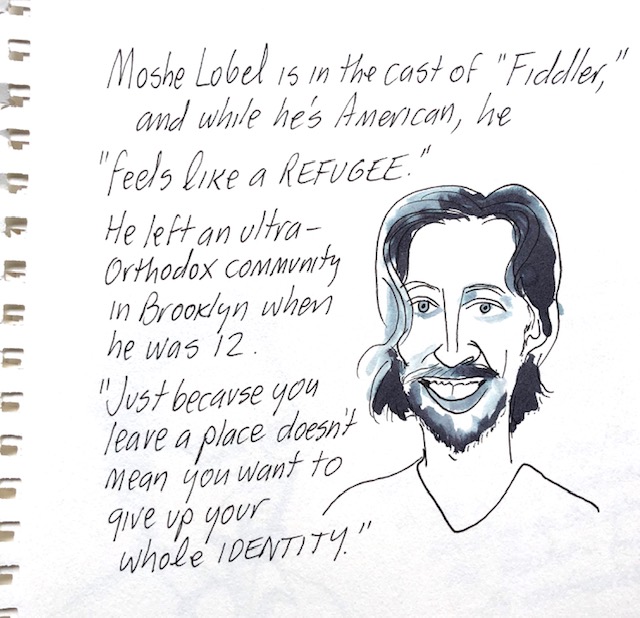 Moshe Lobel is in the cast of "Fiddler,"
and while he's American, he
"feels like a REFUGEE."
He left an ultra-
Orthodox community
in Brooklyn when
he was 12.
"Just because you
leave a place doesn't
mean you want to
give up your
whole IDENTITY."